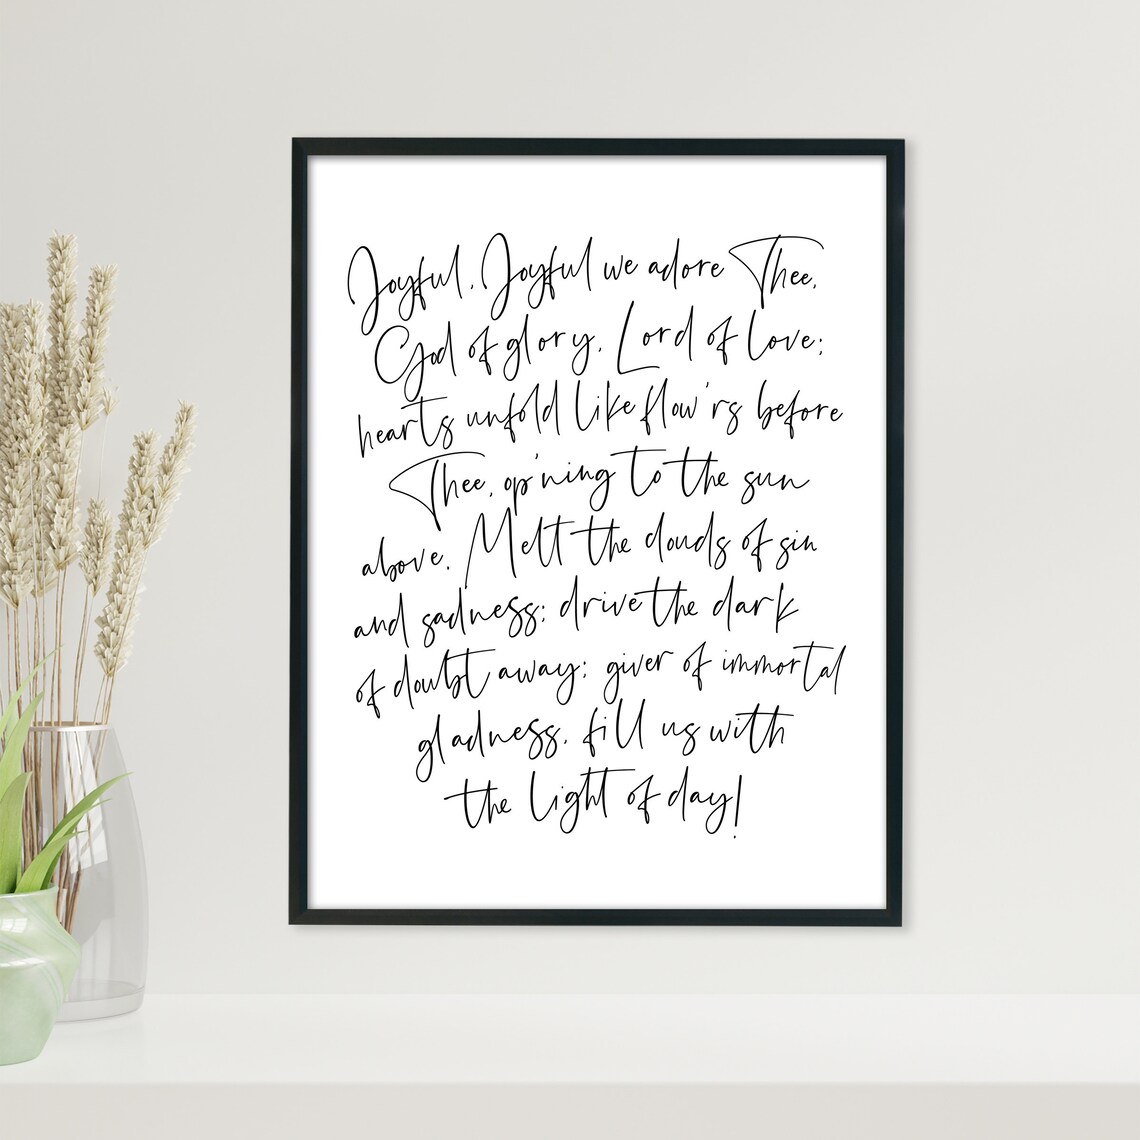 Joyful, Joyful we adore Thee,
God of glory, Lord of love;
hearts unfold like flow'rs before
Thee, op'ning to the sun
above. Melt the clouds of sin
and sadness; drive the dark
of doubt away; giver of immortal
gladness, fill us with
the light of day!